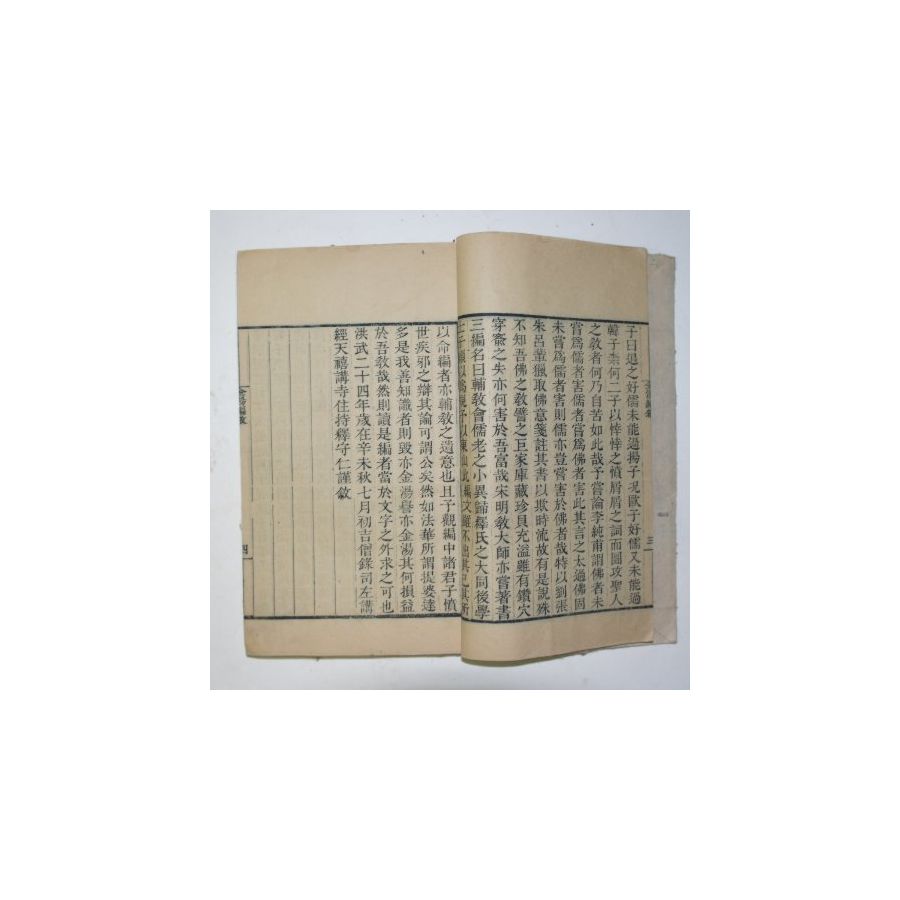 子曰退之好儒未能過揚子况歐于好儒又未能過
韓子柰何二子以悻悻之憤屑屑之詞而圖攻聖人
之敎者何乃自苦如此哉予嘗論李純甫謂佛者未
嘗爲儒者害儒者嘗爲佛者害此其言之太過佛固
未嘗爲儒者害則儒亦豈嘗害於佛者哉特以劉張
朱呂輩獵取佛意箋註其書以欺時流故有是說殊
不知吾佛之敎譬之巨家庫藏珍貝充溢雖有鑽穴
穿窬之失亦何害於吾富哉宋明敎大師亦嘗著書
三編名曰輔敎會儒老之小異歸釋氏之大同後學
以命編者亦輔敎之遺意也且予觀編中諸君子憤
世疾邪之辯其論可謂公矣然如法華所謂提婆達
多是我善知識者則毀亦金湯譽亦金湯其何損益
於吾敎哉然則讀是編者當於文字之外求之可也
洪武二十四年歲在辛未秋七月初吉僧錄司左講
經天禧講寺住持釋守仁謹敘
三
四